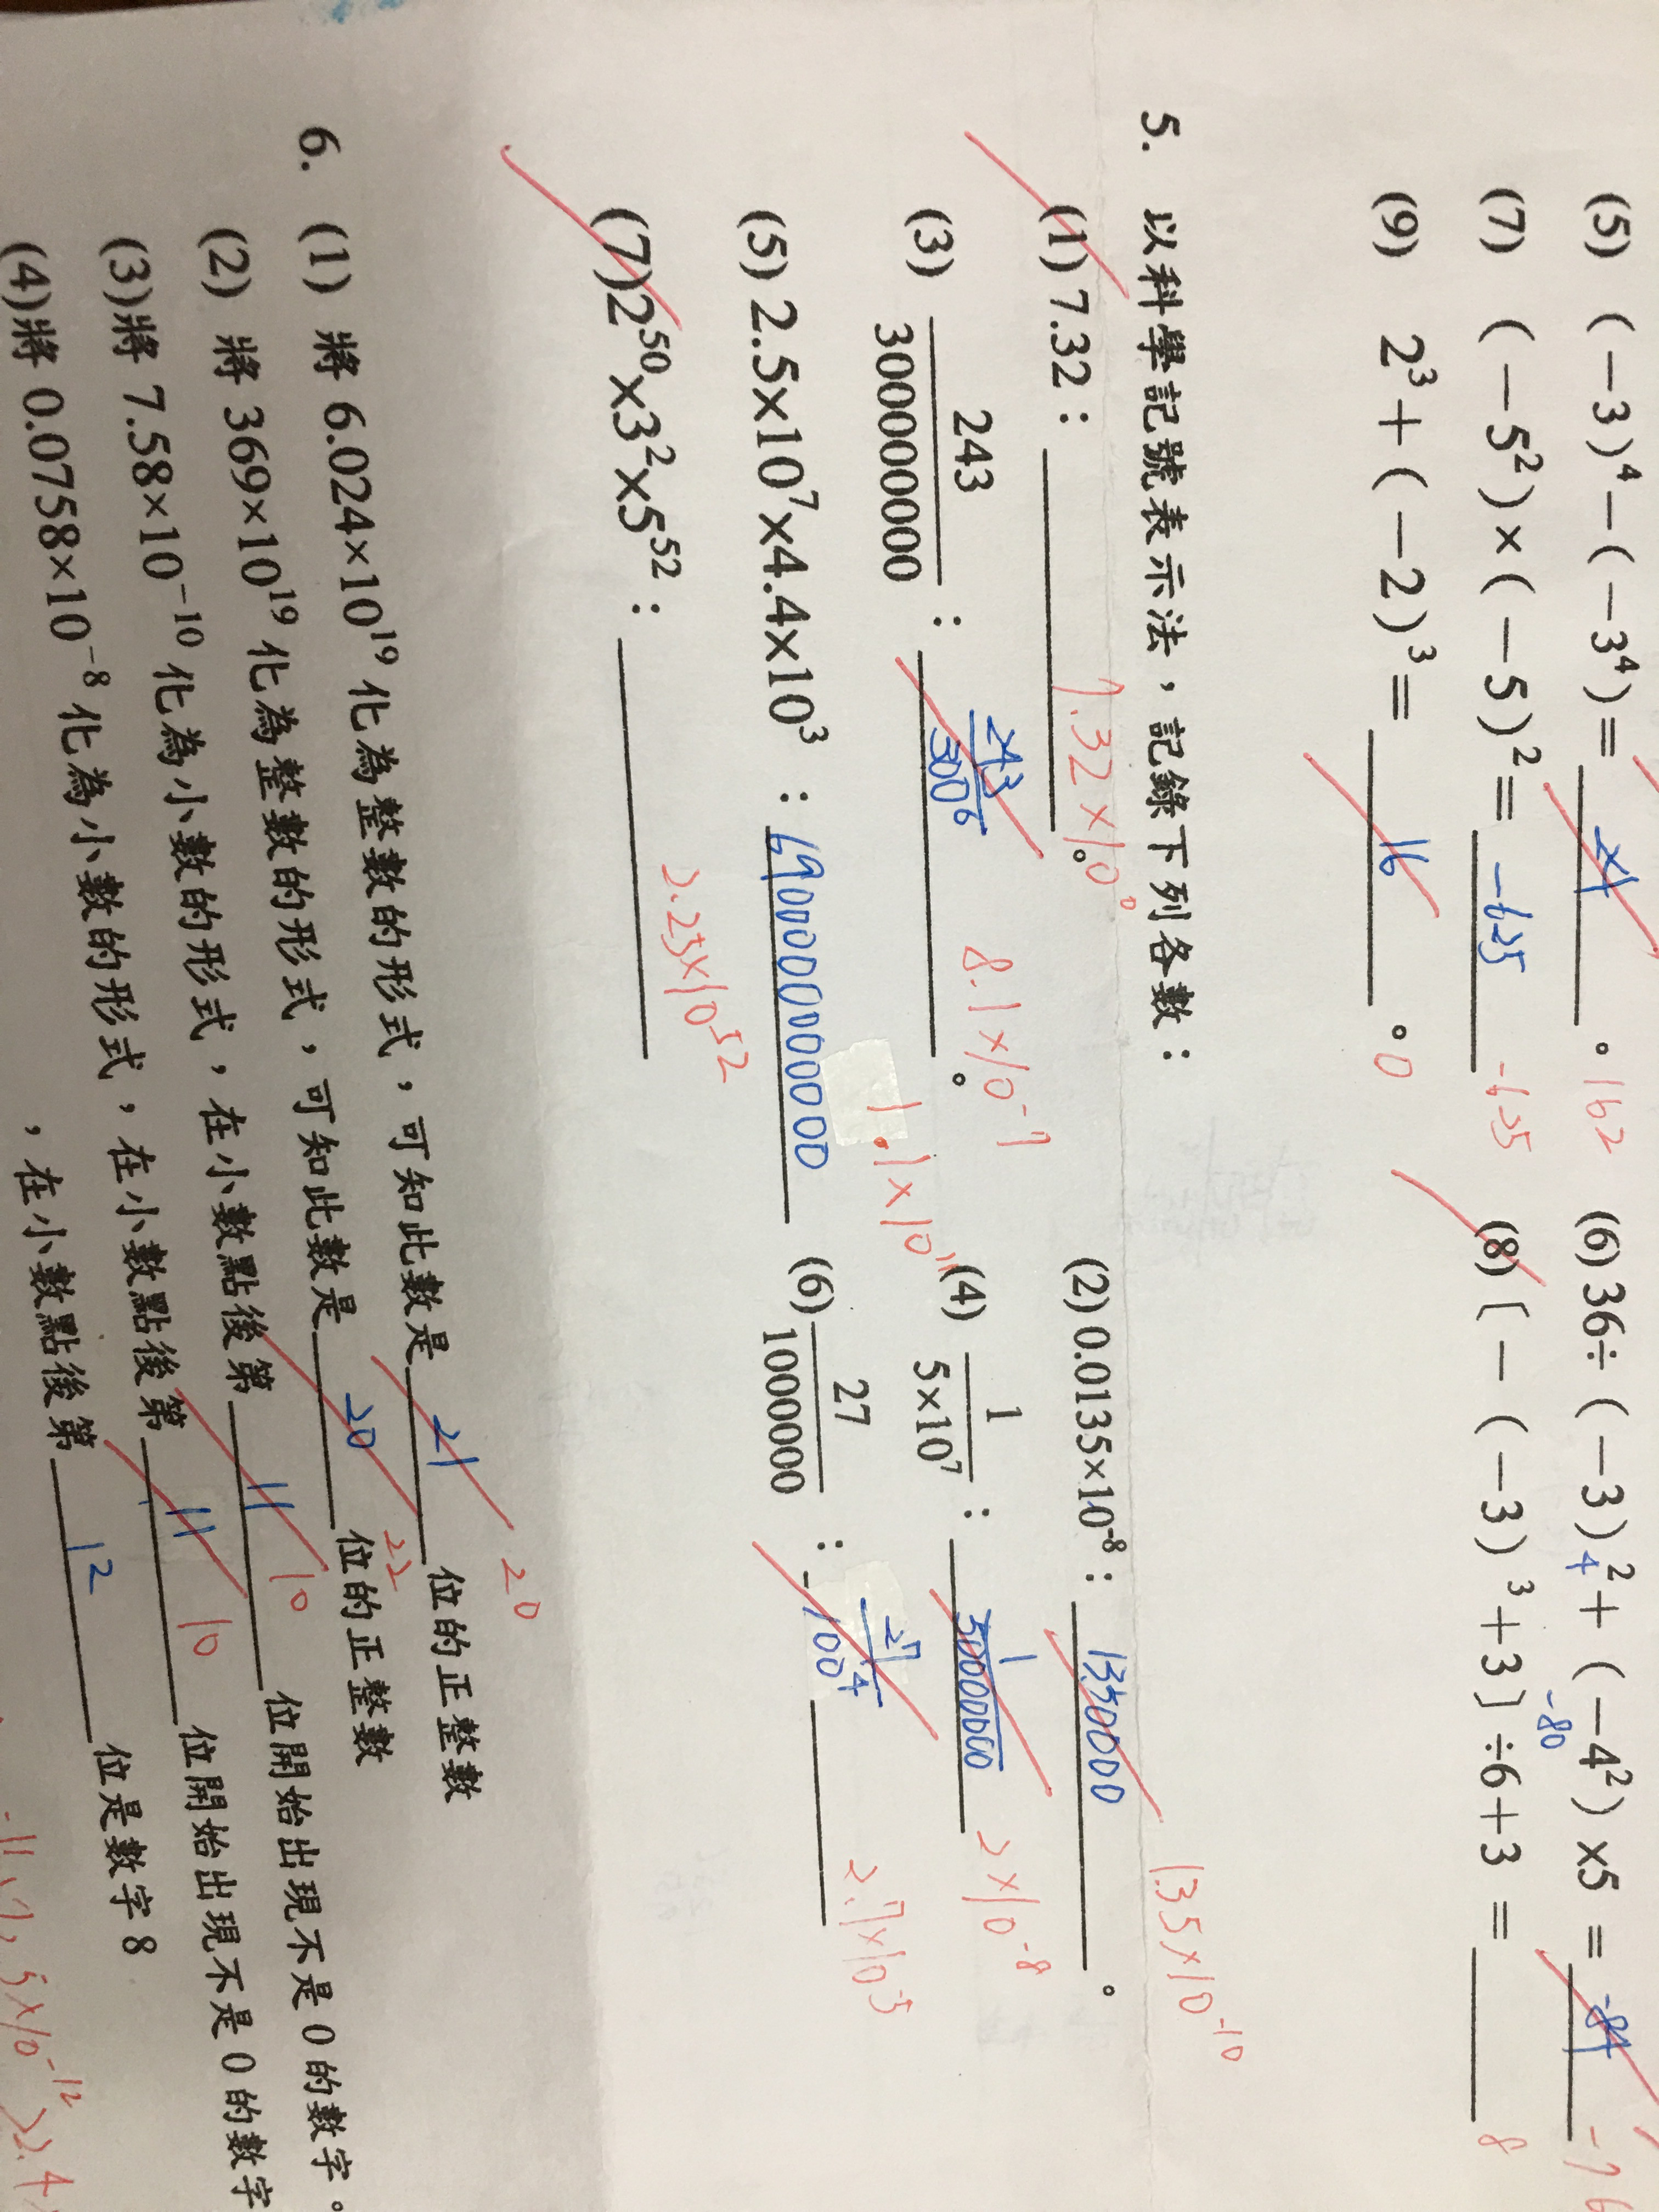 (5) (－3)⁴－(－3⁴)＝ 21 。 162 (6) 36÷(－3)²＋(－4²)×5＝ -84 -76
4 -80
(7) (－5²)×(－5)²＝ -625 -625 (8)〔－(－3)³＋3〕÷6＋3＝ 8
(9) 2³＋(－2)³＝ 16 。 0
5. 以科學記號表示法，記錄下列各數：
(1) 7.32： 7.32×10⁰ 。 (2) 0.0135×10⁻⁸： 1350000 。 1.35×10⁻¹⁰
(3) 243/300000000： 243/300⁶ 。 8.1×10⁻⁷ (4) 1/5×10⁷： 1/50000000 2×10⁻⁸
(5) 2.5×10⁷×4.4×10³： 1.1×10¹¹ (6) 27/1000000： 27/100⁴ 2.7×10⁻⁵
(7) 2⁵⁰×3²×5⁵²： 2.25×10⁵²
6. (1) 將 6.024×10¹⁹ 化為整數的形式，可知此數是 21 位的正整數 20
(2) 將 369×10¹⁹ 化為整數的形式，可知此數是 20 位的正整數 22
(3)將 7.58×10⁻¹⁰ 化為小數的形式，在小數點後第 11 位開始出現不是 0 的數字。 10
(4)將 0.0758×10⁻⁸ 化為小數的形式，在小數點後第 11 位開始出現不是 0 的數字 10
，在小數點後第 12 位是數字 8